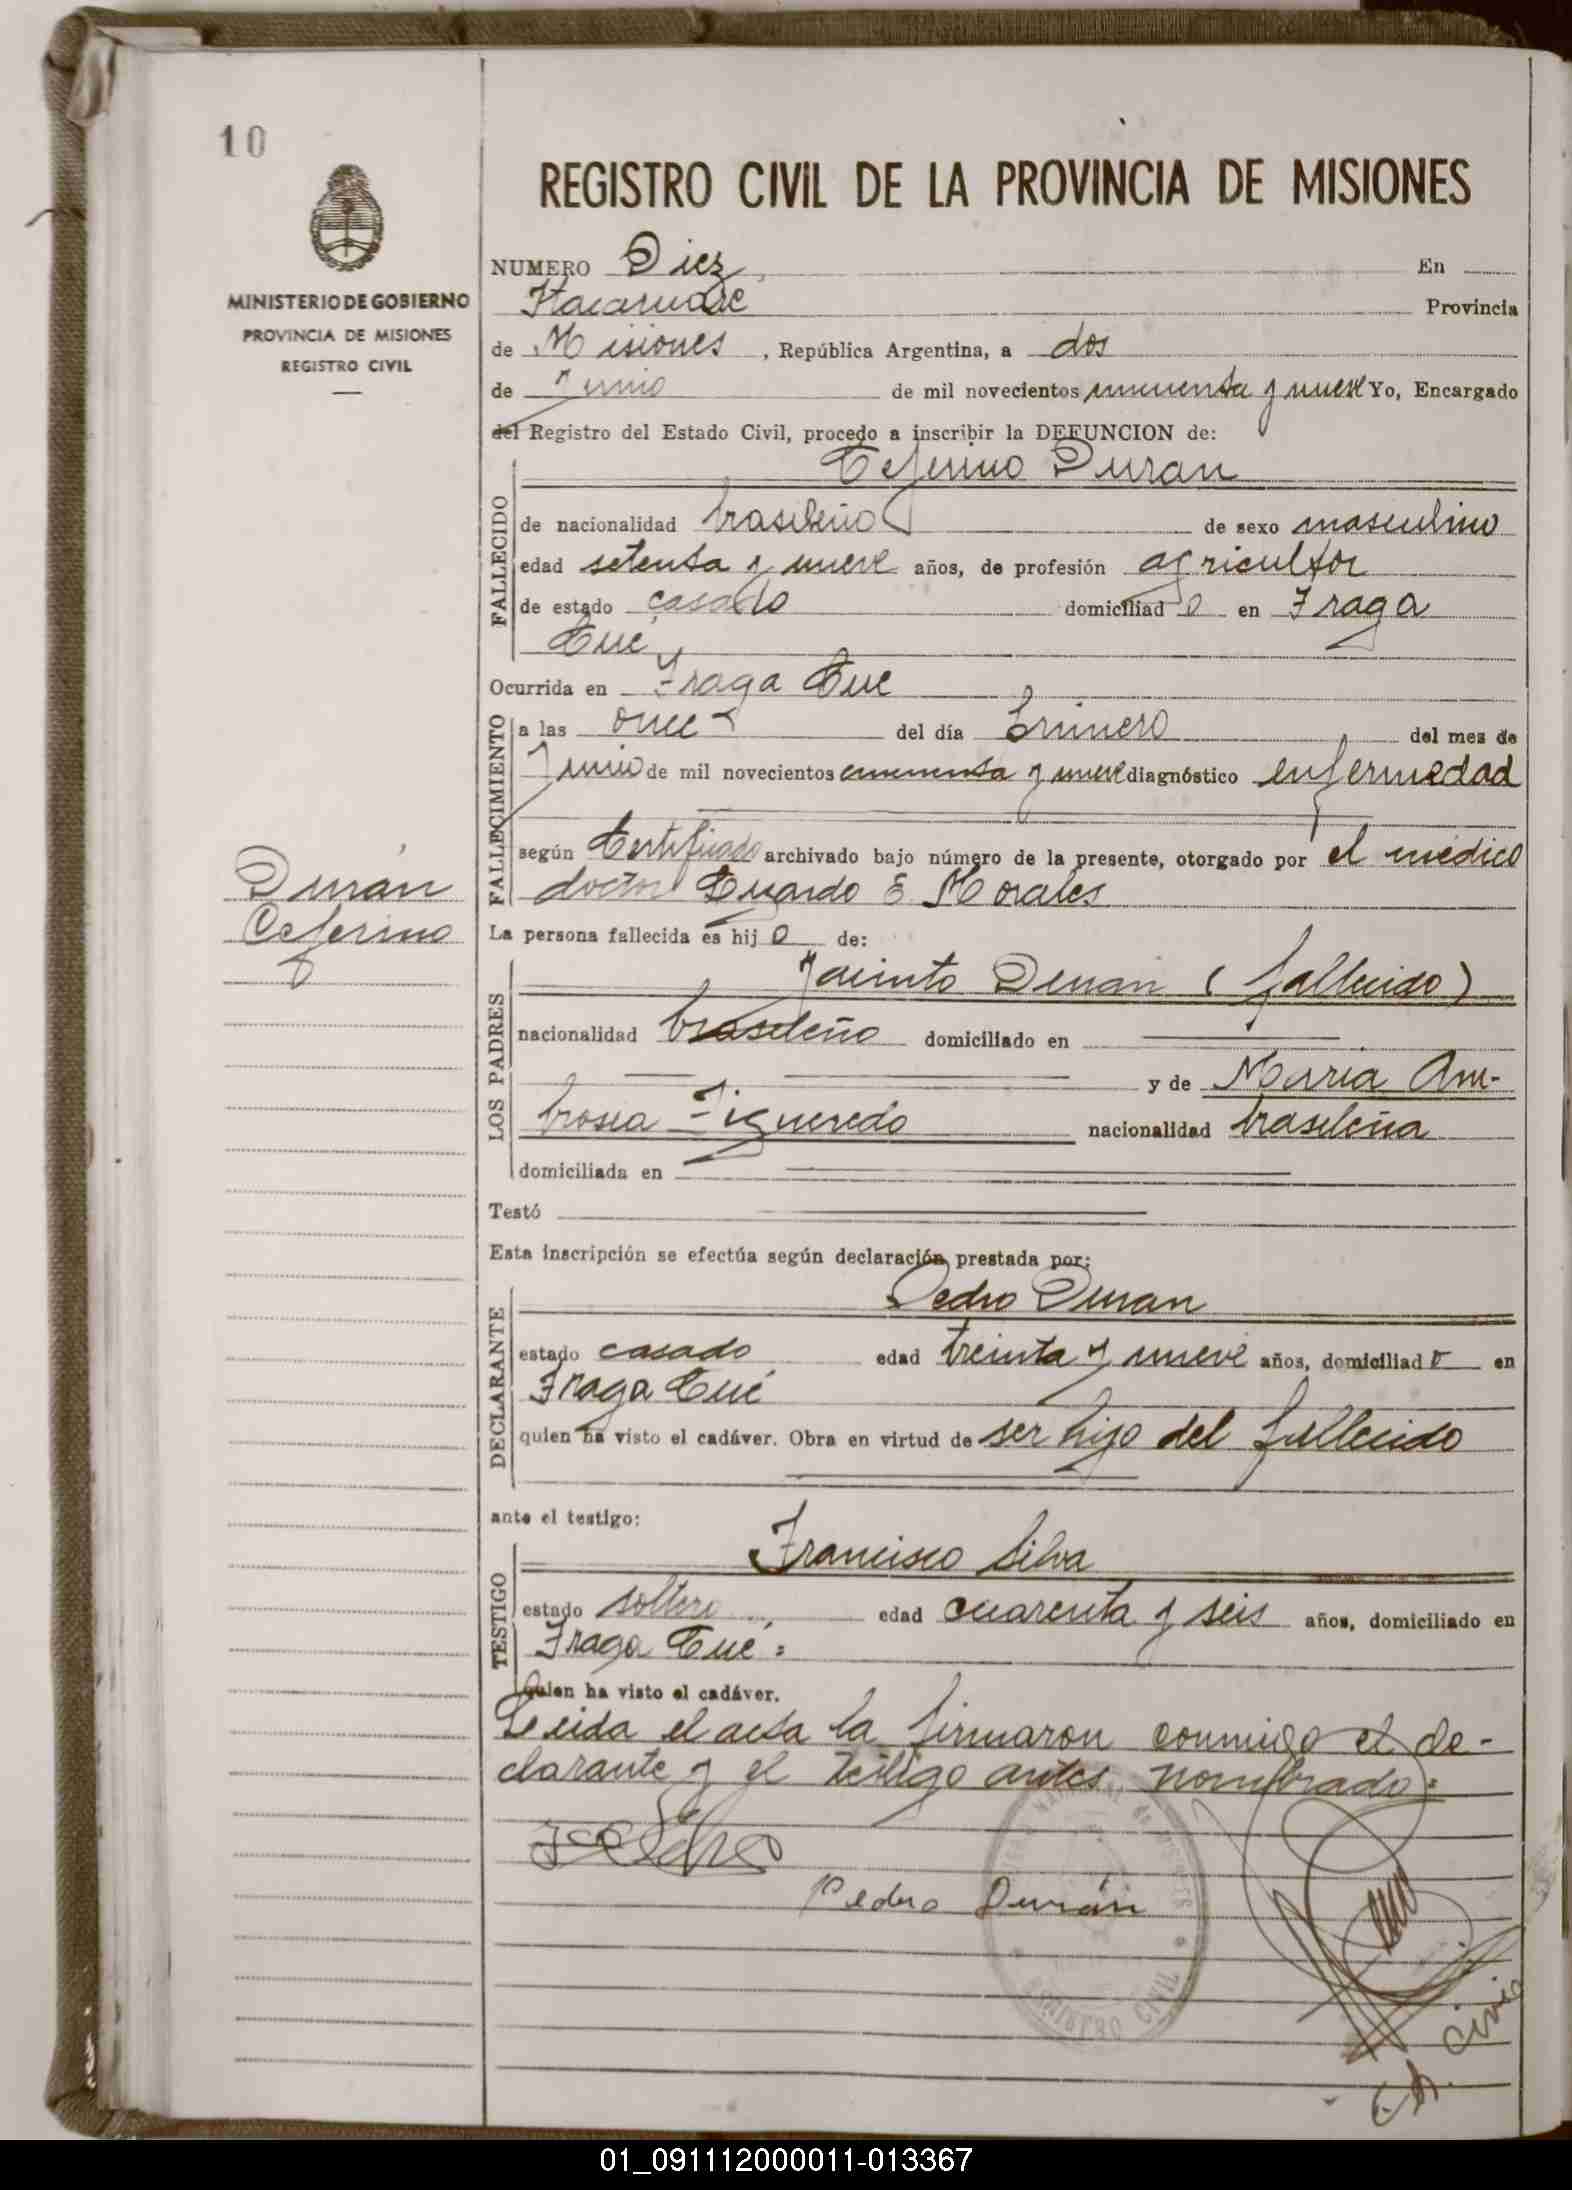 10
MINISTERIO DE GOBIERNO
PROVINCIA DE MISIONES
REGISTRO CIVIL
REGISTRO CIVIL DE LA PROVINCIA DE MISIONES
NUMERO Diez En
Itacaruaré Provincia
de Misiones, República Argentina, a dos
de Junio de mil novecientos cincuenta y nueve Yo, Encargado
del Registro del Estado Civil, procedo a inscribir la DEFUNCION de:
Ceferino Duran
FALLECIDO
de nacionalidad brasileño de sexo masculino
edad setenta y nueve años, de profesión agricultor
de estado casado domiciliado en Fraga
Cué
Ocurrida en Fraga Cué
FALLECIMIENTO
a las once del día primero del mes de
Junio de mil novecientos cincuenta y nueve diagnóstico enfermedad
según Certificado archivado bajo número de la presente, otorgado por el médico
doctor E. Morales
Durán
Ceferino
La persona fallecida es hijo de:
LOS PADRES
Jacinto Duran (fallecido)
nacionalidad brasileño domiciliado en
y de Maria Am-
brosia Figueredo nacionalidad brasileña
domiciliada en
Testó
Esta inscripción se efectúa según declaración prestada por:
DECLARANTE
Pedro Duran
estado casado edad treinta y nueve años, domiciliado en
Fraga Cué
quien ha visto el cadáver. Obra en virtud de ser hijo del fallecido
ante el testigo:
TESTIGO
Francisco Silva
estado soltero edad cuarenta y seis años, domiciliado en
Fraga Cué:
quien ha visto el cadáver.
Leida el acta la firmaron conmigo el de-
clarante y el testigo antes nombrado:
Pedro Durán
REGISTRO CIVIL
01_091112000011-013367